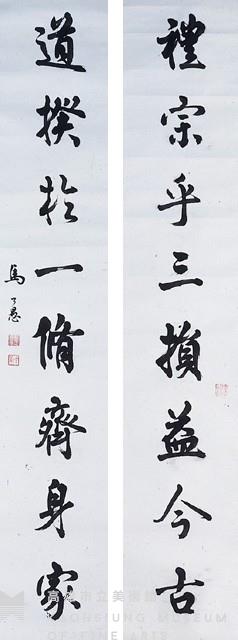 禮宗乎三損益今古
道揆於一脩齊身家
馬壽華
高雄市立美術館
KAOHSIUNG MUSEUM
OF FINE ARTS